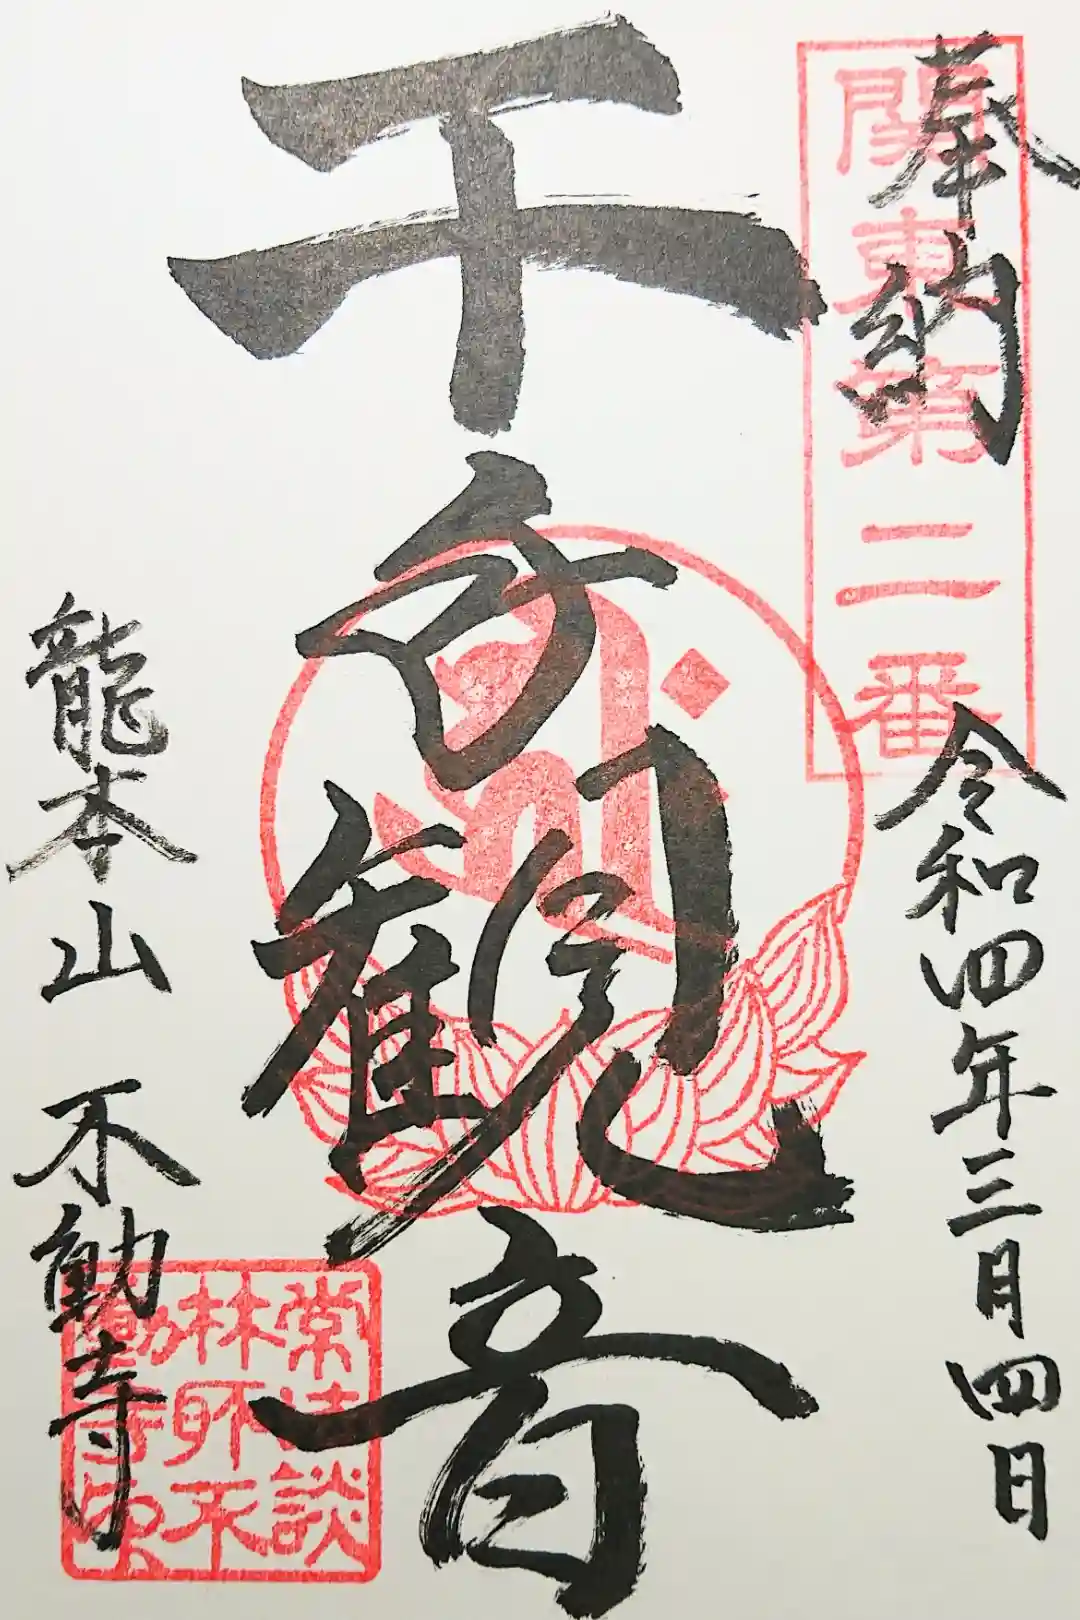 奉納
関東第二番
令和四年三月四日
千手観音
龍本山 不動寺
常法談
林所不
動寺印